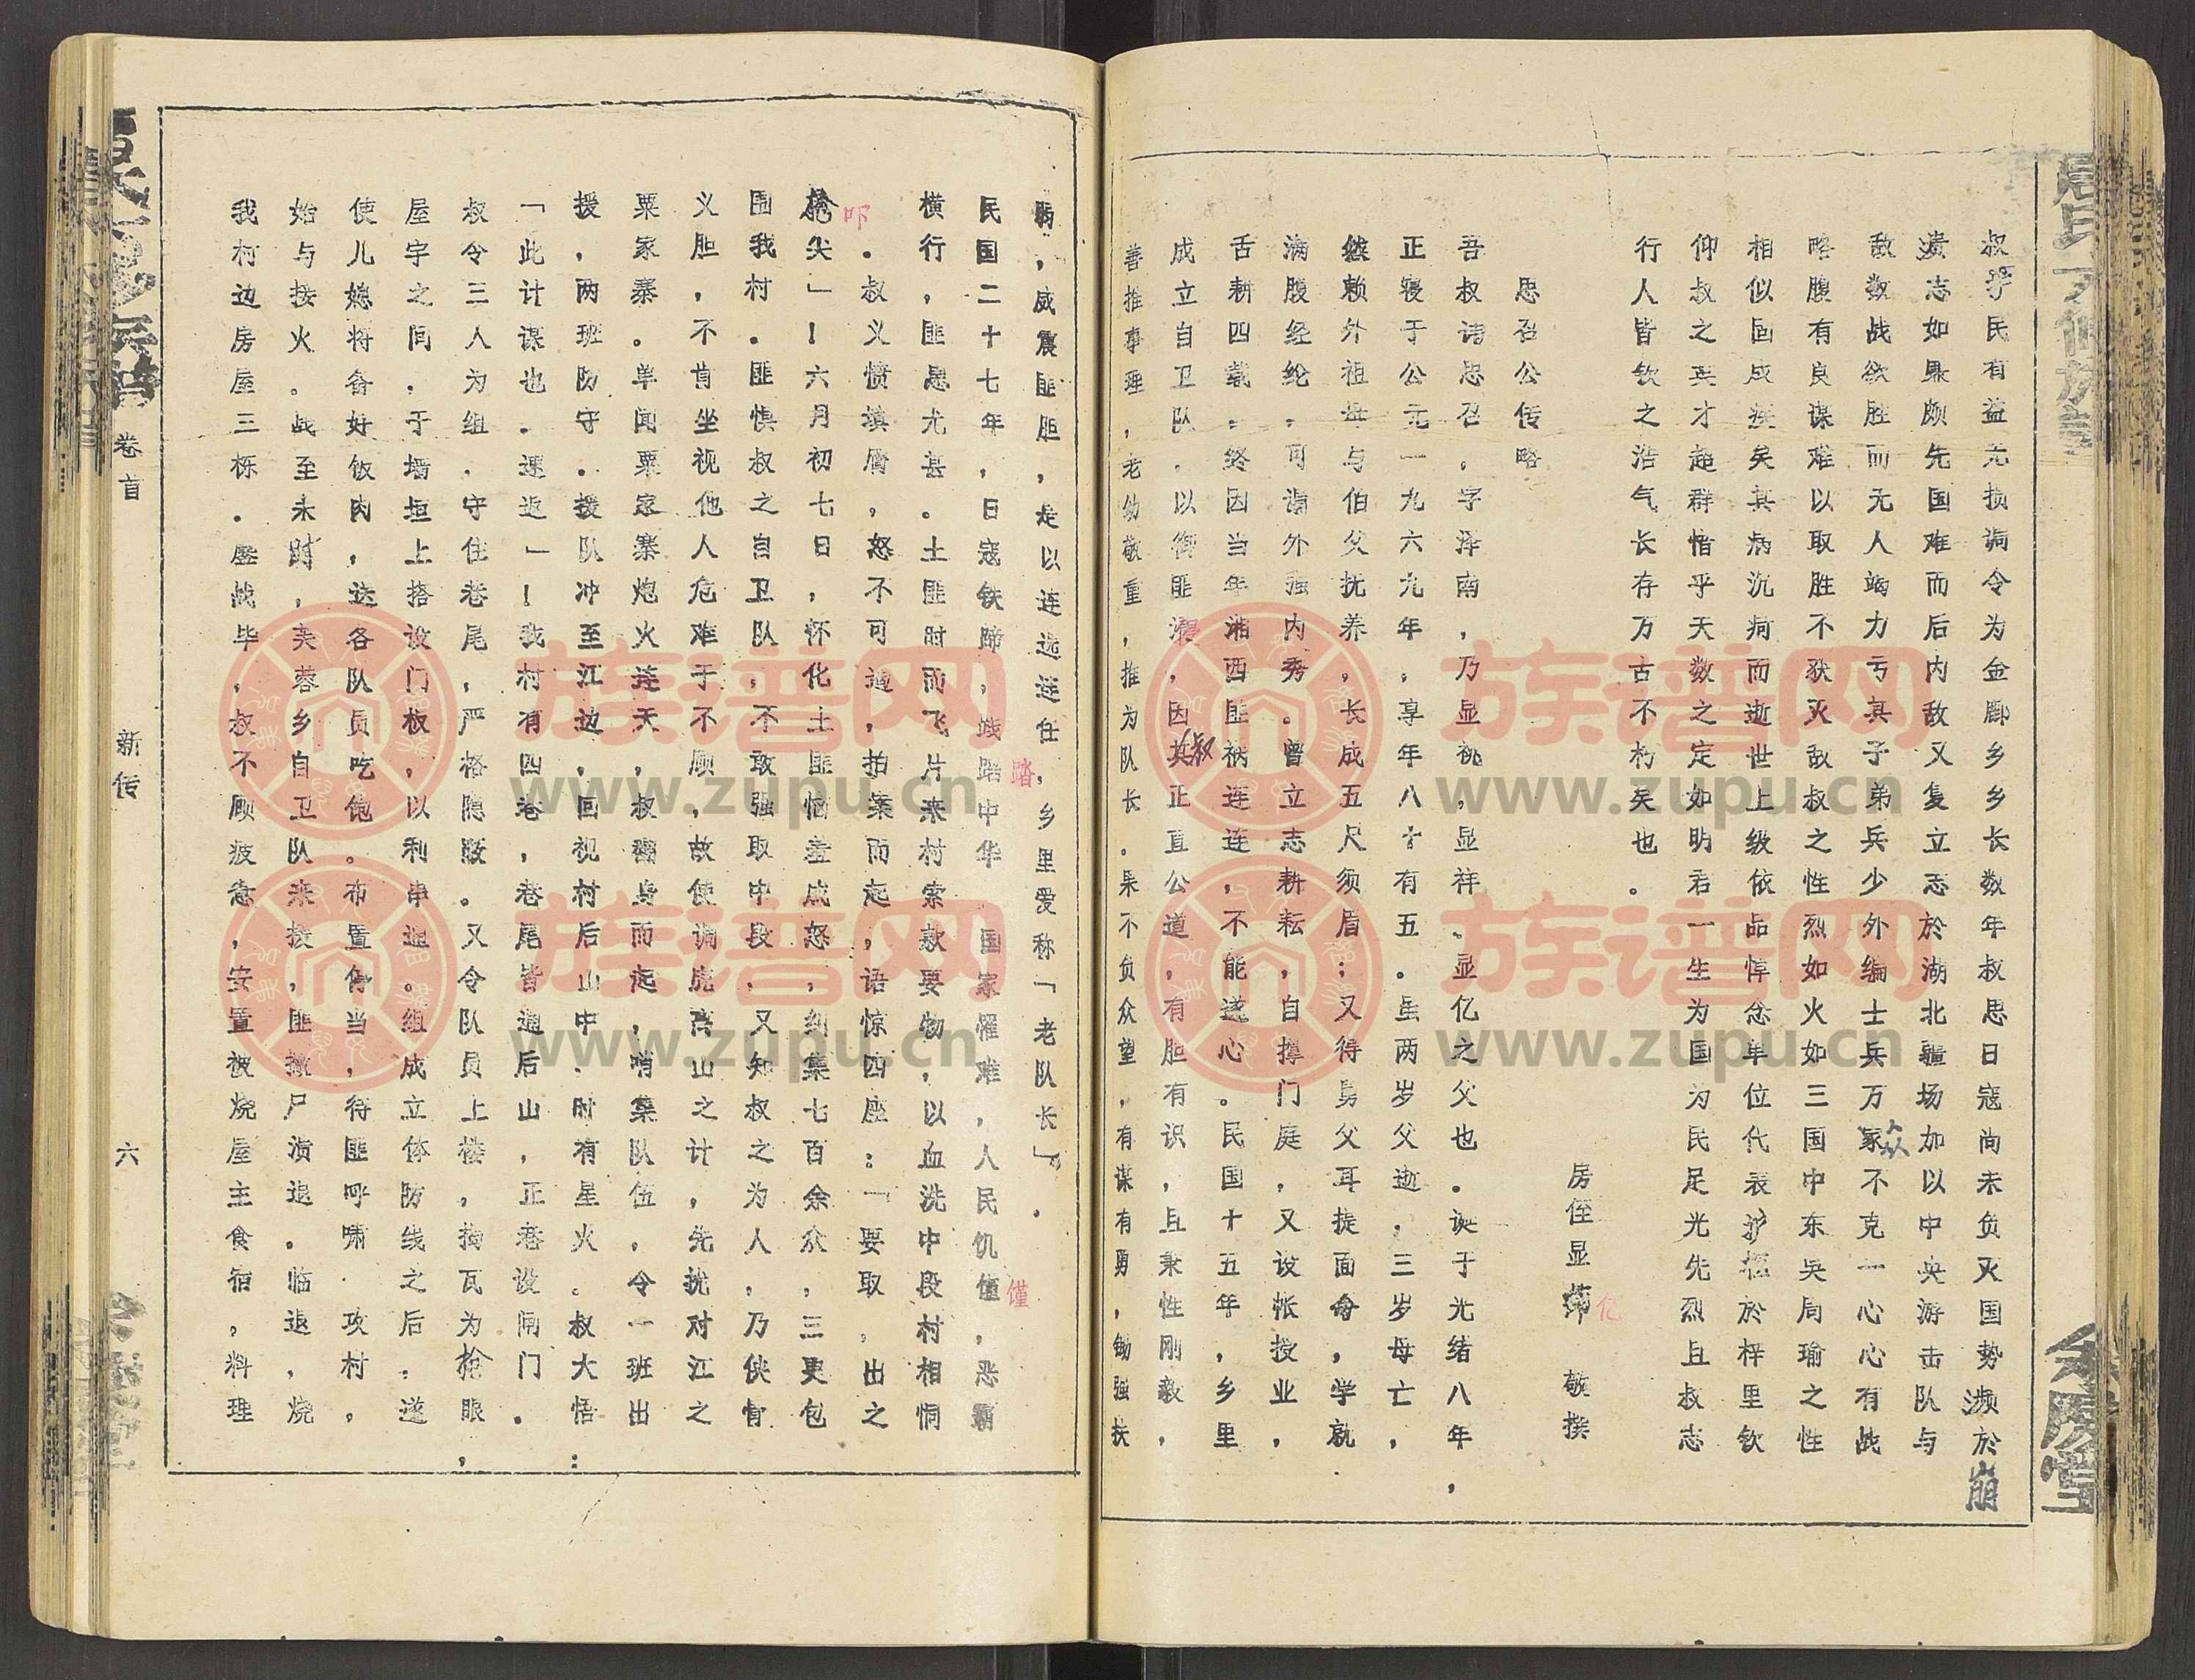 叔于民有益无损调令为金郿乡乡长数年叔思日寇尚未负灭国势濒於崩
溃志如廉颇先国难而后内敌又复立志於湖北疆场加以中央游击队与
敌数战欲胜而无人竭力亏其子弟兵少外编士兵万众不克一心心有战
略腹有良谋难以取胜不狄灭敌叔之性烈如火如三国中东吴周瑜之性
相似回成疾矣其病沉疴而逝世上级依品悼念单位代表护柩於梓里钦
仰叔之英才超群惜乎天数之定如明君一生为国为民足光先烈且叔志
行人皆钦之浩气长存万古不朽矣也。
房侄显亿 敬撰
思召公传略
吾叔讳思召。字泽南,乃显祧,显祥。显亿之父也。诞于光绪八年,
正寝于公元一九六九年,享年八十有五。虽两岁父逝,三岁母亡,
然赖外祖母与伯父抚养,长成五尺须眉;又得舅父耳提面命,学就
满腹经纶,可谓外强内秀。曾立志耕耘,自撑门庭,又设帐授业,
舌耕四载。终因当年湘西匪祸连连,不能遂心。民国十五年,乡里
成立自卫队,以御匪寝,因叔正直公道,有胆有识,且秉性刚毅,
善推事理,老幼敬重,推为队长。果不负众望,有谋有勇,锄强扶
弱,威震匪胆,是以连选连任,乡里爱称「老队长」。
民国二十七年,日寇铁蹄,践踏中华 国家罹难,人民饥馑,恶霸
横行,匪患尤甚。土匪时而飞片来村索款要物,以血洗中段村相恫
吓。叔义愤填膺,怒不可遏,拍案而起,语惊四座:「要取,出之
枪尖」!六月初七日,怀化土匪恼羞成怒,纠集七百余众,三更包
围我村。匪惧叔之自卫队,不敢强取中段,又知叔之为人,乃侠骨
义胆,不肯坐视他人危难于不顾,故使调虎离山之计,先扰对江之
粟家寨。单闻粟家寨炮火连天,叔翻身而起,哨集队伍,令一班出
援,两班防守。援队冲至江边,回视村后山中,时有星火。叔大悟:
「此计谋也。速返」!我村有四巷,巷尾皆通后山,正巷设闸门。
叔令三人为组,守住巷尾,严格隐蔽。又令队员上楼,掏瓦为枪眼,
屋宇之间,于墙垣上搭设门板,以利串通。组成立体防线之后,遂
使儿媳将备好饭肉,送各队员吃饱。布置停当,待匪呼啸,攻村,
始与接火。战至未时,芙蓉乡自卫队来援,匪撇尸溃退。临退,烧
我村边房屋三栋。鏖战毕,叔不顾疲惫,安置被烧屋主食宿,料理
卷首
新传
六
余庆堂
族谱网
www.zupu.cn
族谱网
www.zupu.cn
族谱网
www.zupu.cn
族谱网
www.zupu.cn